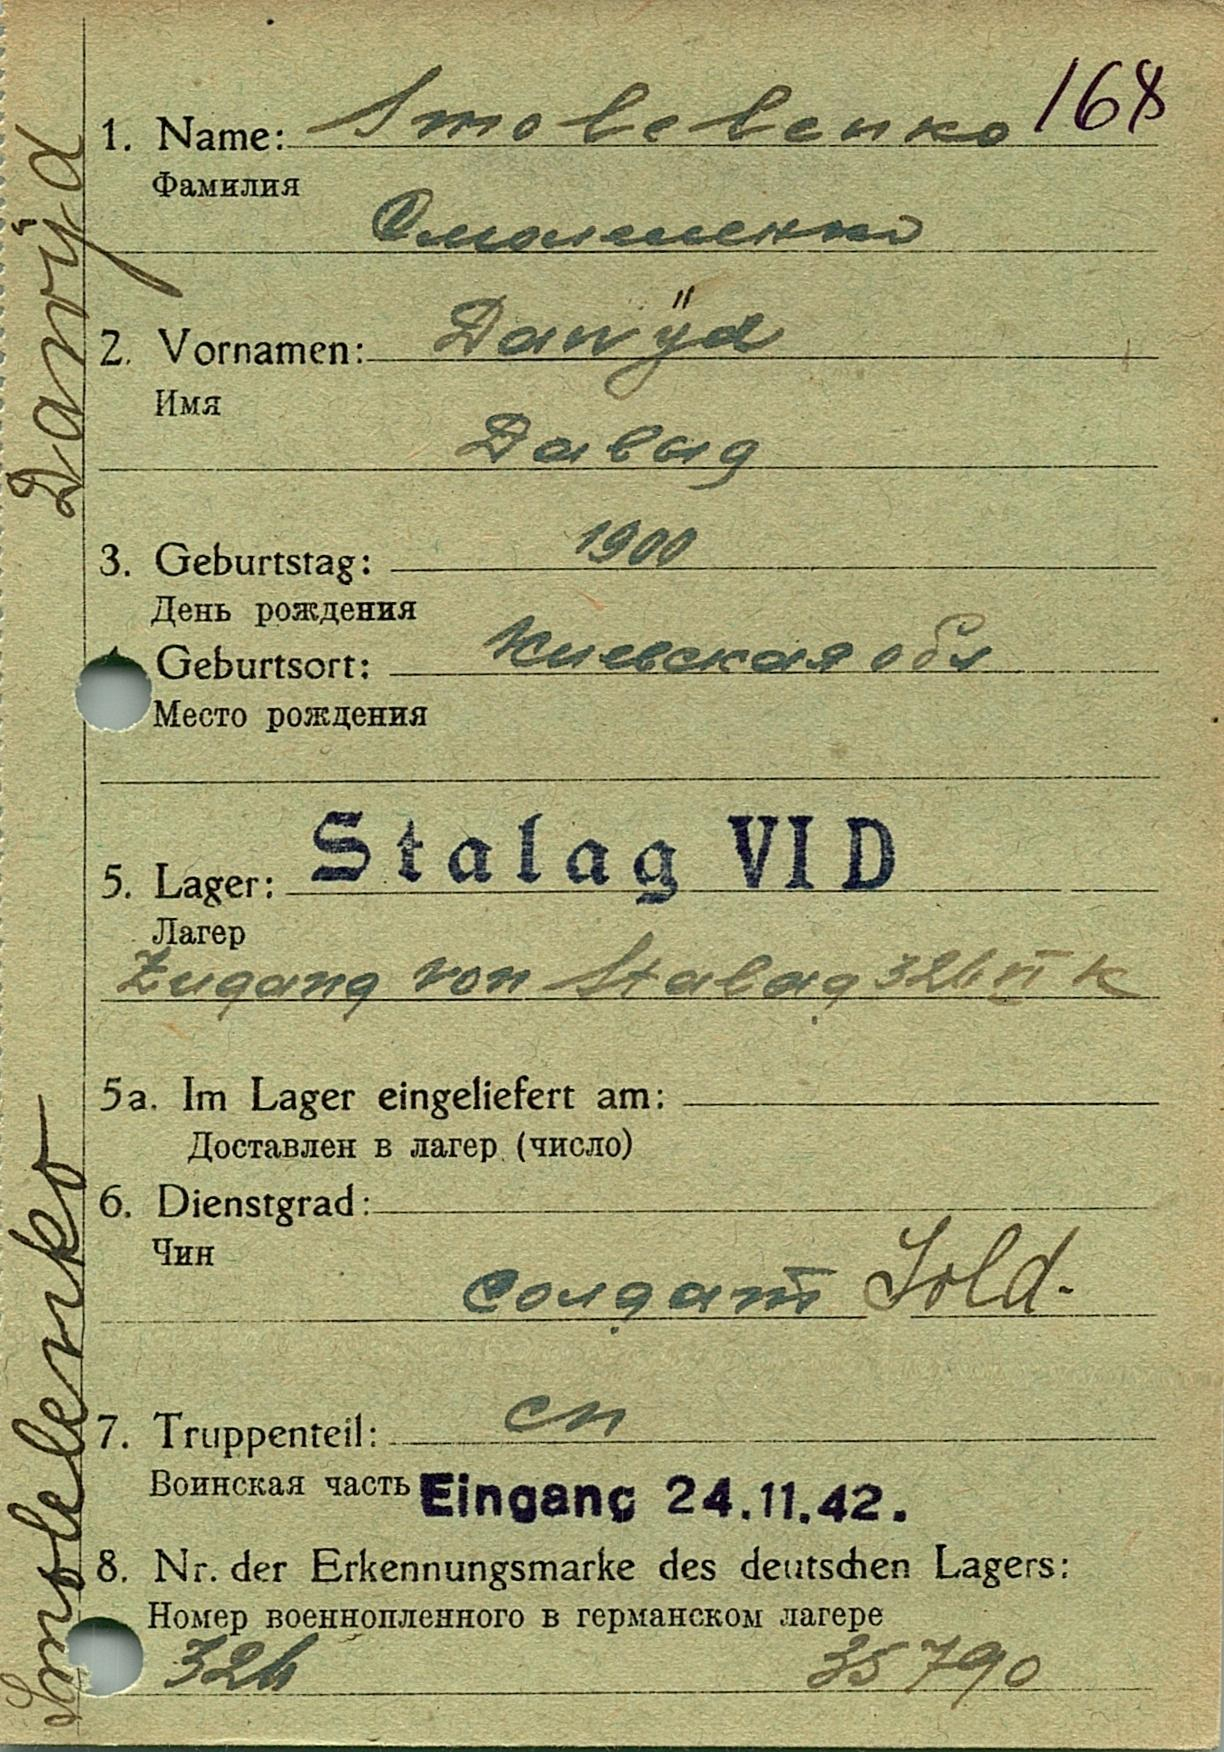 168
1. Name: Smolelenko
Фамилия
Смолеленко
2. Vornamen: Dawÿd
Имя
Давыд
3. Geburtstag: 1900
День рождения
Geburtsort: Киевская обл
Место рождения
5. Lager: Stalag VI D
Лагер
Zugang von Stalag 326 VI K
5a. Im Lager eingeliefert am:
Доставлен в лагер (число)
6. Dienstgrad:
Чин
солдат Sold.
7. Truppenteil: сп
Воинская часть Eingang 24.11.42.
8. Nr. der Erkennungsmarke des deutschen Lagers:
Номер военнопленного в германском лагере
326 35790
Smolelenko Dawyd